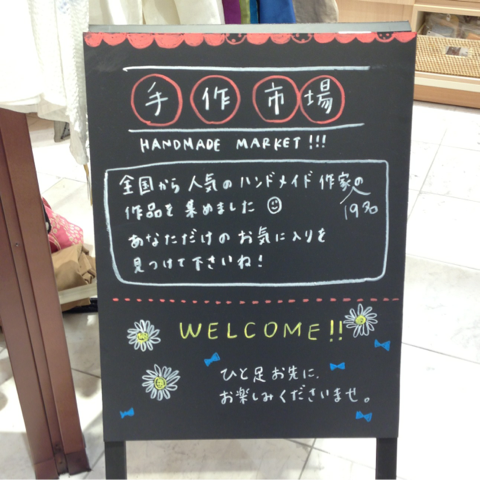 手作市場
HANDMADE MARKET!!!
全国から人気のハンドメイド作家の
作品を集めました
あなただけのお気に入りを
見つけて下さいね!
WELCOME!!
ひと足お先に、
お楽しみくださいませ。